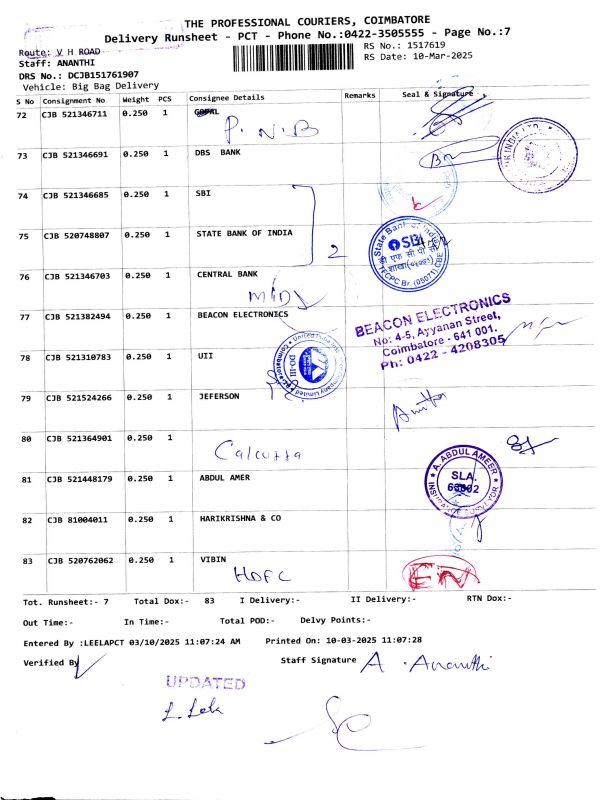 THE PROFESSIONAL COURIERS, COIMBATORE
Delivery Runsheet - PCT - Phone No.:0422-3505555 - Page No.:7
Route: V H ROAD
RS No.: 1517619
Staff: ANANTHI
RS Date: 10-Mar-2025
DRS No.: DCJB151761907
Vehicle: Big Bag Delivery
S No Consignment No Weight PCS Consignee Details Remarks Seal & Signature
72 CJB 521346711 0.250 1 GOPAL
P.N.B
73 CJB 521346691 0.250 1 DBS BANK
74 CJB 521346685 0.250 1 SBI
75 CJB 520748807 0.250 1 STATE BANK OF INDIA
2
State Bank of India
SBI
डी एफ सी पी सी
शाखा
TFCPC Br. (05071) CBE
76 CJB 521346703 0.250 1 CENTRAL BANK
77 CJB 521382494 0.250 1 BEACON ELECTRONICS
BEACON ELECTRONICS
No: 4-5, Ayyanan Street,
Coimbatore - 641 001.
Ph: 0422 - 4208305
78 CJB 521310783 0.250 1 UII
DO-III
79 CJB 521524266 0.250 1 JEFERSON
Anitha
80 CJB 521364901 0.250 1
Calcutta
81 CJB 521448179 0.250 1 ABDUL AMER
A. ABDUL AMEER
SLA.
INSURANCE SURVEYOR
82 CJB 81004011 0.250 1 HARIKRISHNA & CO
83 CJB 520762062 0.250 1 VIBIN
HDFC
EN
Tot. Runsheet:- 7 Total Dox:- 83 I Delivery:- II Delivery:- RTN Dox:-
Out Time:- In Time:- Total POD:- Delvy Points:-
Entered By :LEELAPCT 03/10/2025 11:07:24 AM Printed On: 10-03-2025 11:07:28
Verified By
Staff Signature A. Ananthi
UPDATED